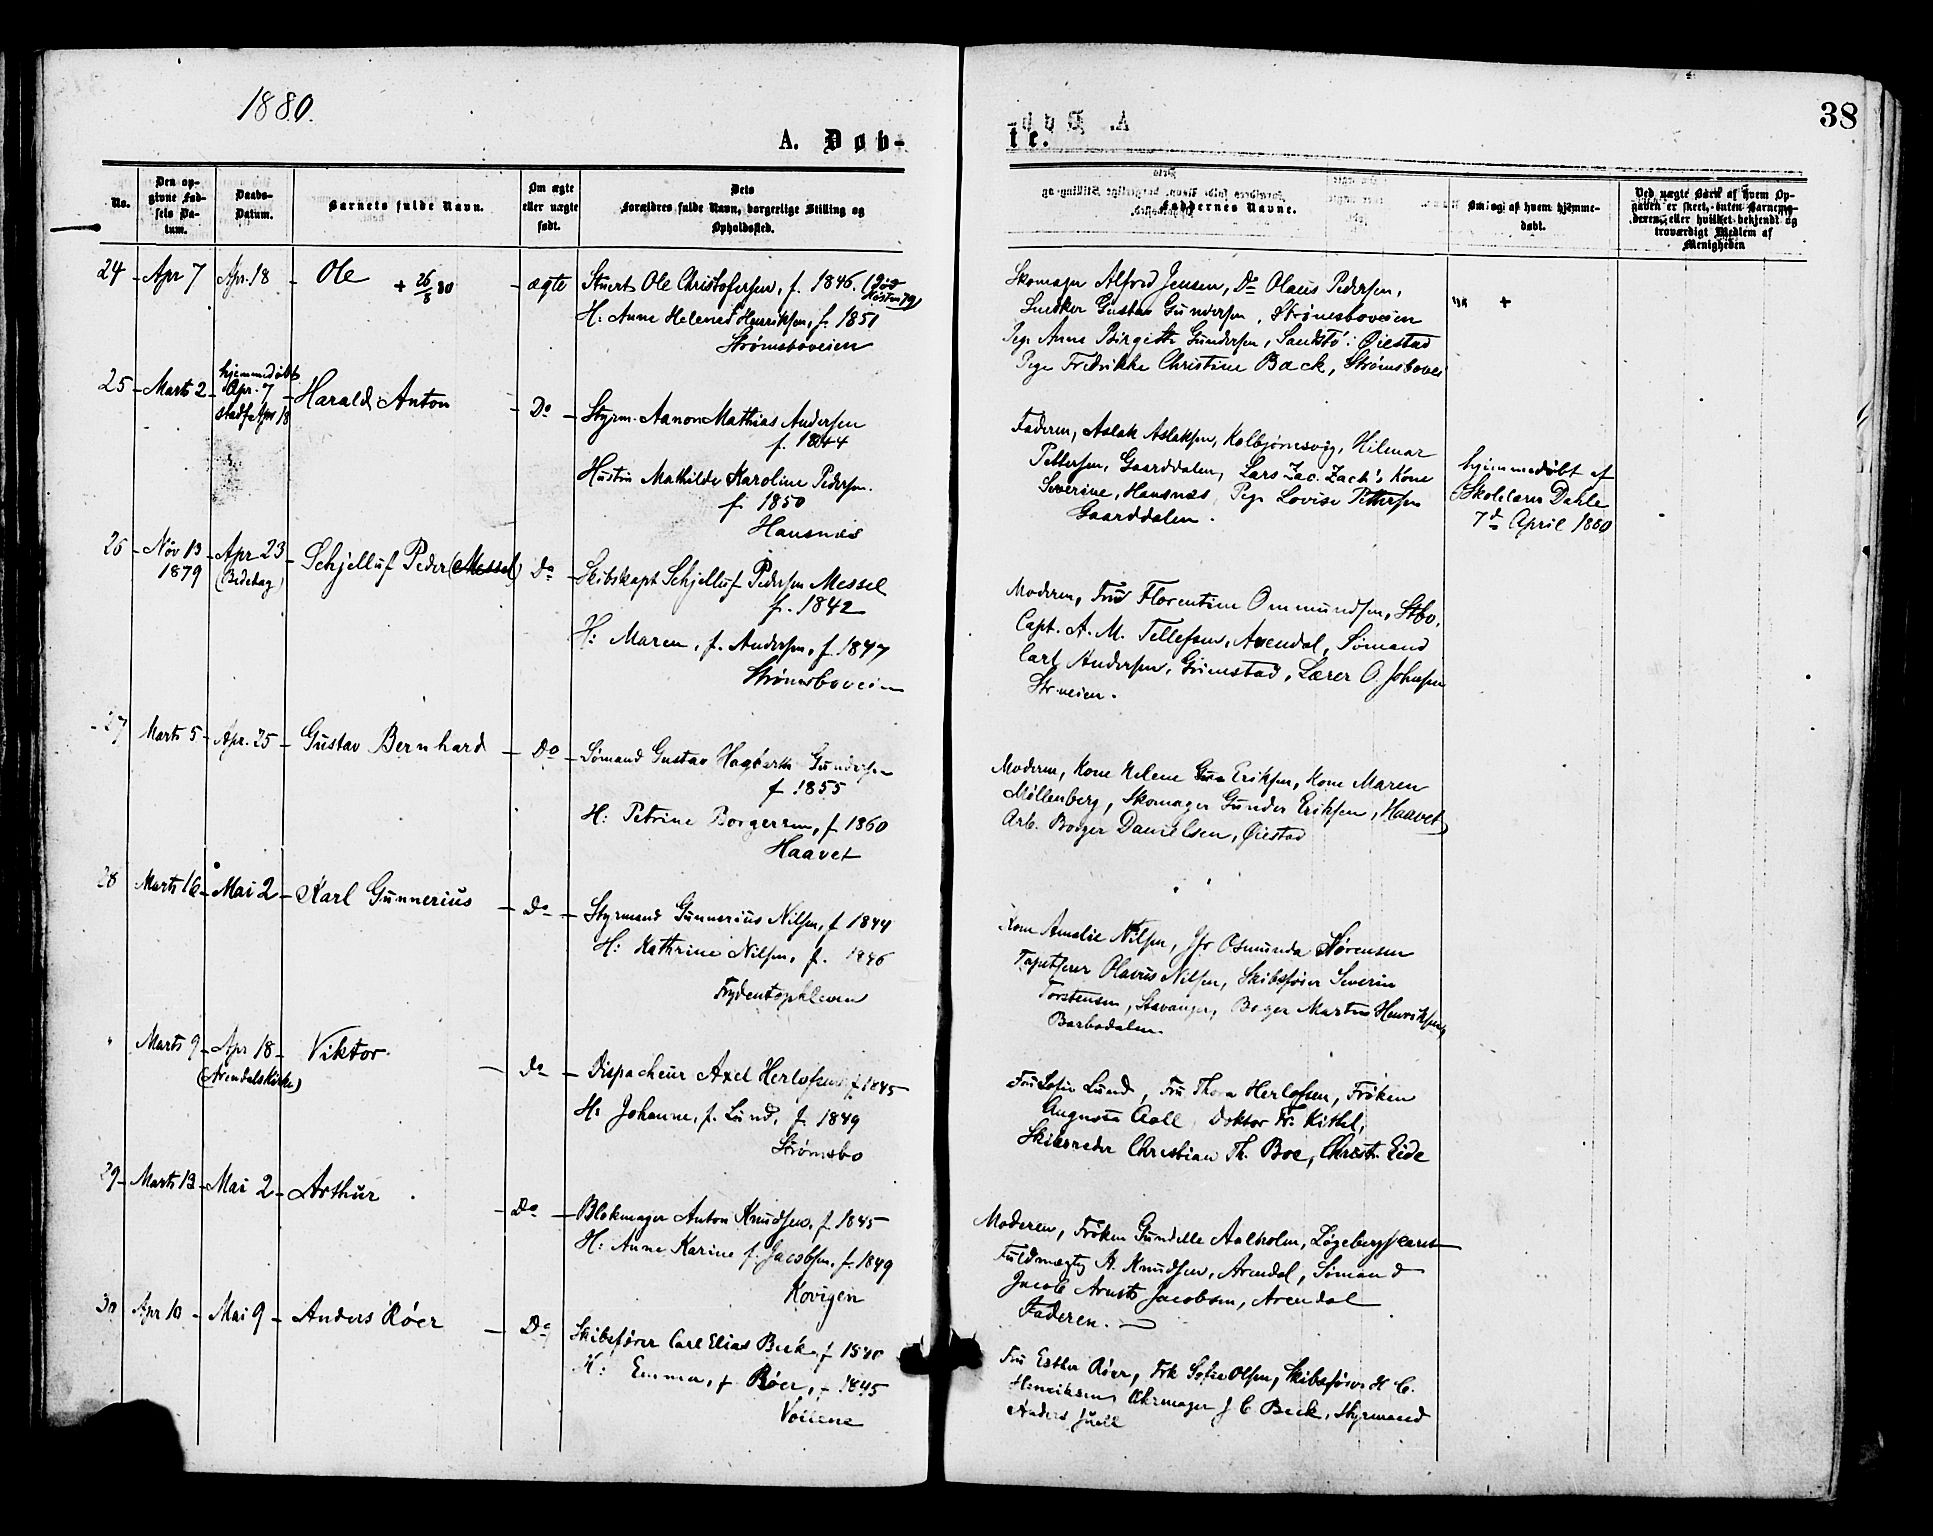 1880.
38
A. Døb-
te.
No.
Den op-
givne Fød-
sels Da-
tum.
Daabs-
Datum.
Barnets fulde Navn.
Om ægte
eller uægte
født.
Dets
Forældres fulde Navn, borgerlige Stilling og
Opholdssted.
Faddernes Navne.
Om og af hvem hjemme-
døbt.
Ved uægte Børn af hvem Op-
gaven er skeet, enten Barnemo-
deren, eller hvilket bekjendt og
troværdigt Medlem af
Menigheden
24 - Apr 7 Apr. 18 - Ole + 26/8 80 - ægte
Stuert Ole Christofersen, f. 1846. (død
Høsten 79)
H: Anne Helene Henriksen, f. 1851
Strømsboveien
Skomager Alfred Jensen, Do Olaus Pedersen,
Snedker Gustav Gundersen, Strømsboveien
Pige Anne Birgitte Gundersen, Sandstø i Øiestad
Pige Fredrikke Christine Back, Strømsbovei
+
25 - Marts 2 - hjemmedøbt
Apr. 7
stadf. Apr 18 - Harald Anton - Do -
Styrm. Aanon Mathias Andersen
f. 1844
Hustru Mathilde Karoline Pedersen.
f. 1850
Hansnæs
Faderen, Aslak Aslaksen, Kolbjørnsvig, Hilmar
Pettersen, Gaarddalen, Lars Zac. Zach's Kone
Severine, Hansnæs, Pige Lovise Pettersen
Gaarddalen.
hjemmedøbt af
Skolelærer Dahle
7d April 1880
26 - Nov 13
1879 - Apr 23
(Bededag) - Schjelluf Peder (Messel) Do -
Skibskapt Schjelluf Pedersen Messel
f. 1842
H: Maren, f. Andersen, f. 1847
Strømsboveien
Moderen, Fru Florentine Ommundsen, Stbo.
Capt. A. M. Tellefsen, Arendal, Sømand
Carl Andersen, Grimstad, Lærer O. Johnsen
Str.veien.
27 Marts 5 - Apr. 25 - Gustav Bernhard - Do -
Sømand Gustav Hagbarth Gundersen
f 1855
H: Petrine Borgersen, f 1860
Haavet
Moderen, Kone Helene Eriksen, Kone Maren
Møllenberg, Skomager Gunder Eriksen, Haavet,
Arb. Borger Danielsen, Øiestad
28 Marts 16 - Mai 2 - Karl Gunnerius - Do -
Styrmand Gunnerius Nilsen, f 1844
H: Kathrine Nilsen, f. 1846
Frydentopkleven
Kone Amalie Nilsen, Jfr Osmunda Sørensen
Tapetserer Olavus Nilsen, Skibsfører Severin
Torstensen, Stavanger, Bager Martin Henriksen,
Barbodalen.
" Marts 9 - Apr 18 -
(Arendals Kirke) Viktor - Do -
Dispacheur Axel Herlofsen f. 1845
H: Johanne, f. Lund, f. 1849
Strømsbo
Fru Sofie Lund, Fru Thora Herlofsen, Frøken
Augusta Aall, Doktor Fr. Kittel,
Skibsreder Christian Th. Boe, Christ. Eide
29 - Marts 13 - Mai 2 - Arthur - Do -
Blokmager Anton Knudsen, f. 1845
H: Anne Karine f. Jacobsen, f. 1849
Kovigen
Moderen, Frøken Gundelle Aalholm,
Fuldmægtig A. Knudsen, Arendal, Sømand
Jacob Arnts Jacobsen, Arendal
Faderen.
30 Apr 10 - Mai 9 - Anders Røer - Do -
Skibsfører Carl Elias Beck, f 1840
H: Emma, f. Røer, f 1845
Voiene
Fru Esther Røer, Frk Sofie Olsen, Skibsfører H C.
Henriksen, Uhrmager J C Beck, Styrmand
Anders Juell